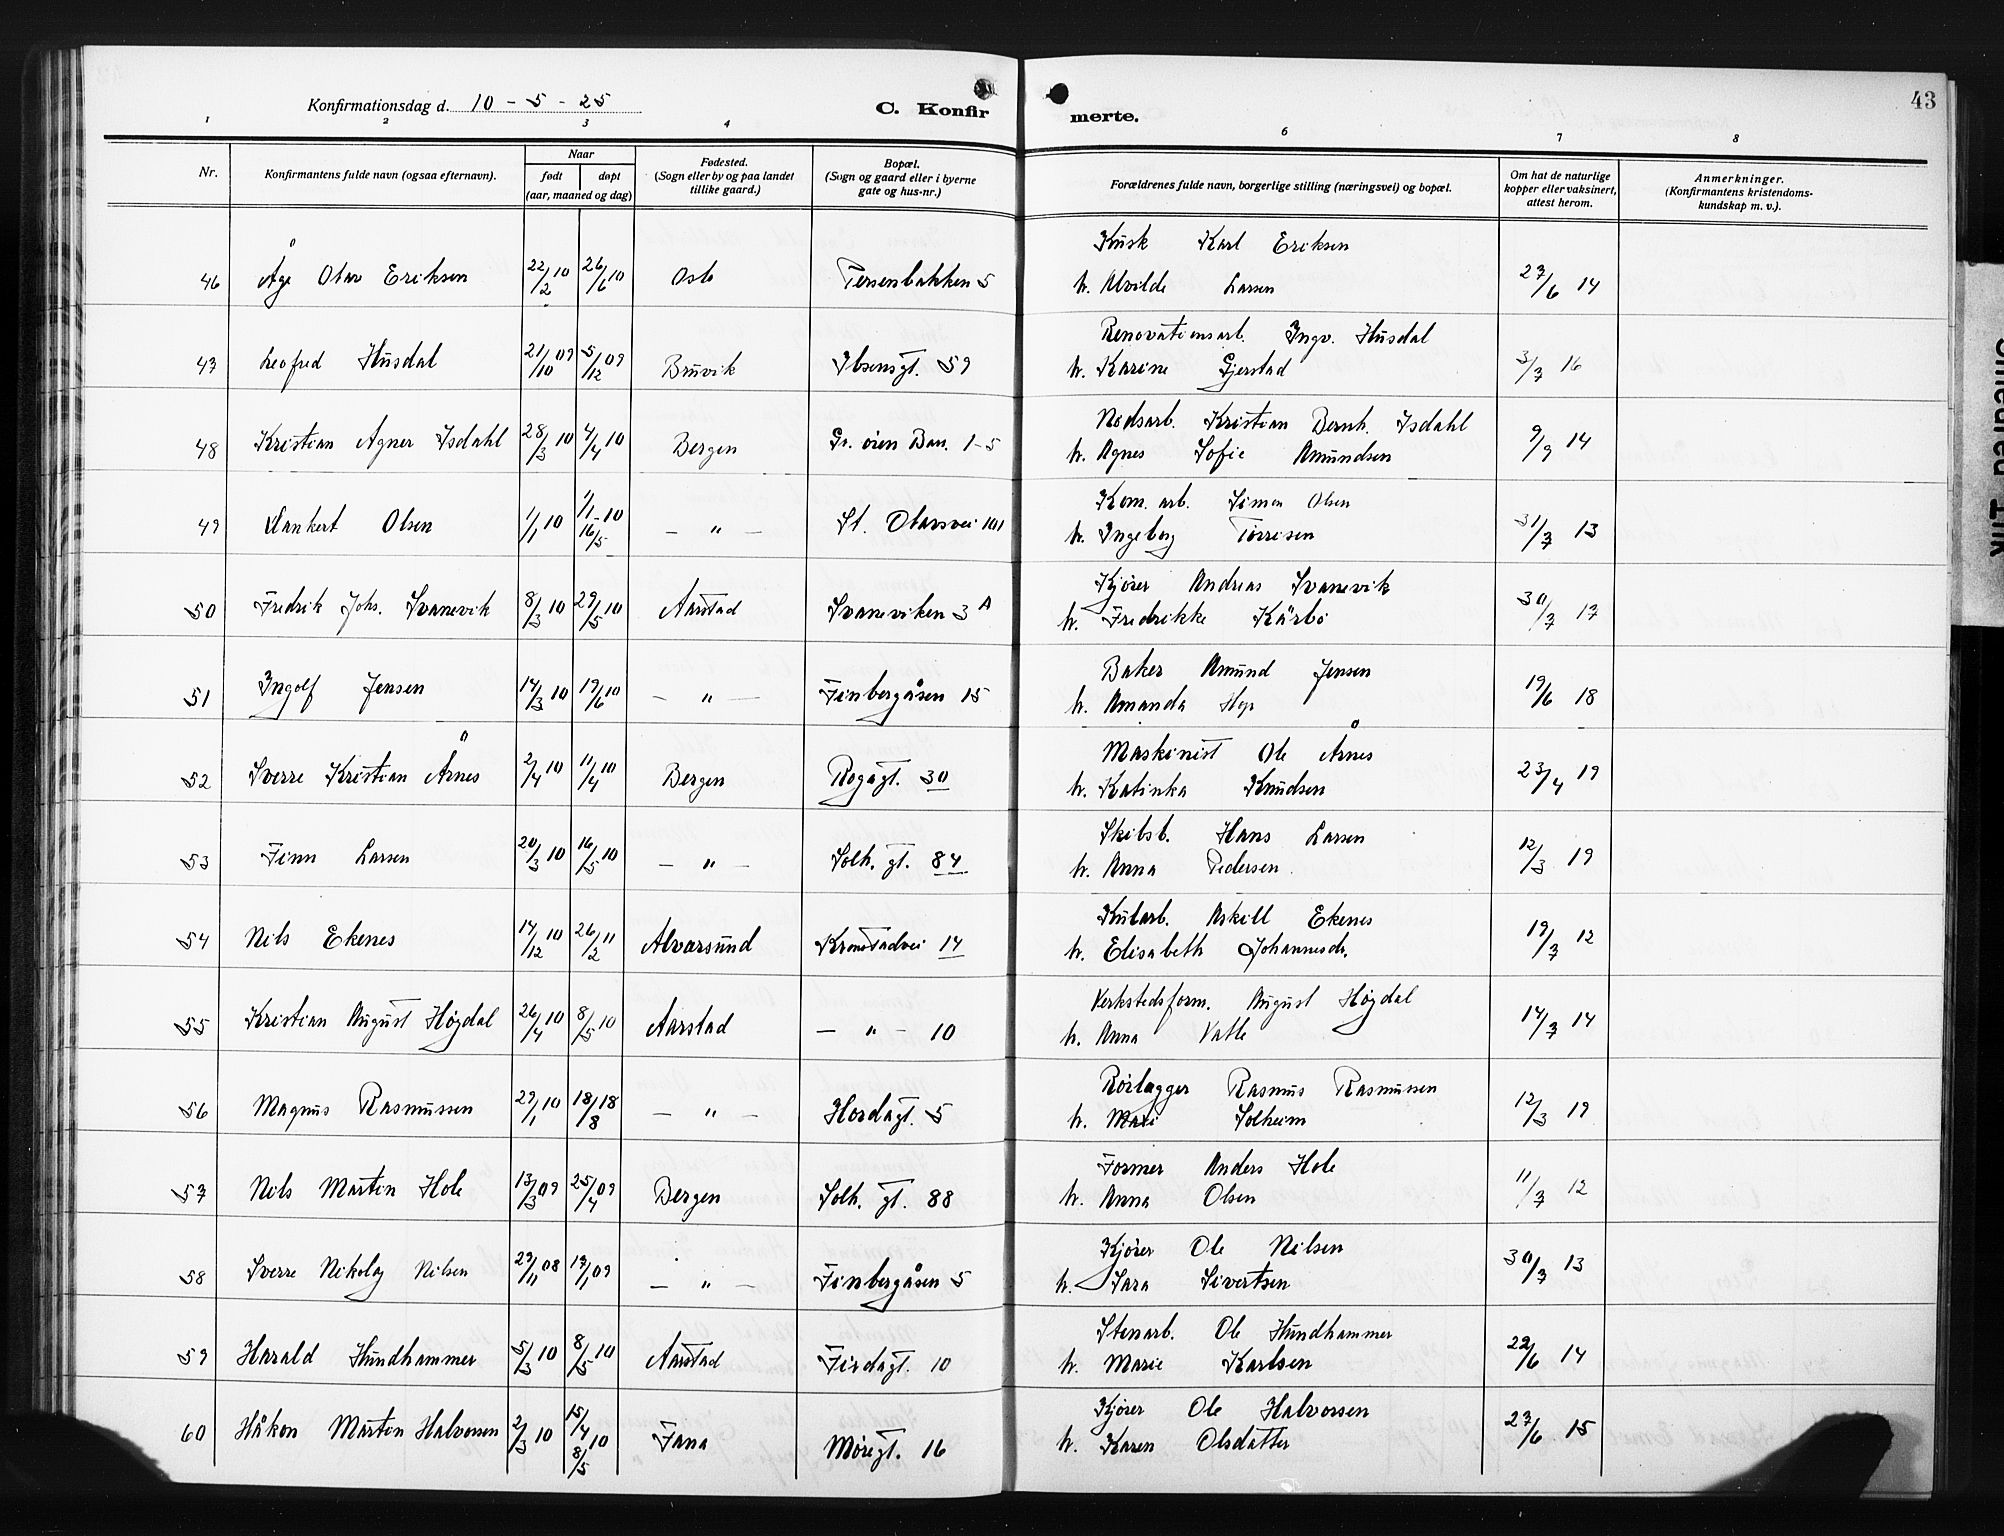 43
Konfirmationsdag d. 10 - 5 - 25
C. Konfirmerte.
1 2 3 4 6 7 8
Nr. Konfirmantens fulde navn (ogsaa efternavn). Naar født døpt (aar, maaned og dag) Fødested. (Sogn eller by og paa landet tillike gaard.) Bopæl. (Sogn og gaard eller i byerne gate og hus-nr.) Forældrenes fulde navn, borgerlige stilling (næringsvei) og bopæl. Om hat de naturlige kopper eller vaksinert, attest herom. Anmerkninger. (Konfirmantens kristendoms-kundskap m. v.).
Kusk Karl Eriksen
46 Åge Olav Eriksen 22/2 10 26/6 10 Oslo 5 h. Alvilde Larsen 27/6 14
Renovationsarb. Ingv. Husdal
47 Leofred Husdal 21/10 09 5/12 09 Bruvik Ibsensgt. 59 h. Karine Gjerstad 3/7 16
Nodsarb. Kristian Bernh. Isdahl
48 Kristian Agner Isdahl 28/3 10 4/4 10 Bergen 1-5 h. Agnes Sofie Amundsen 9/9 14
Kom. arb. Simon Olsen
49 Olsen 1/1 10 1/1-10 16/5 — " — St. Olavsvei 101 h. Ingeborg Torrisen 31/7 13
Kjører Andreas Svanevik
50 Fredrik Johs. Svanevik 8/3 10 29/5 10 Aarstad Svaneviken 3 A h. Fredrikke Kårbø 30/7 17
Baker Amund Jensen
51 Ingolf Jensen 14/3 10 19/6 10 — " — Finbergåsen 15 h. Amanda Hop 19/6 18
Maskinist Ole Årnes
52 Sverre Kristian Årnes 2/4 10 11/4 10 Bergen Rogagt. 30 h. Katinka Knudsen 23/4 19
Skibsb. Hans Larsen
53 Finn Larsen 20/3 10 16/5 10 — " — Solh. gt. 84 h. Anna Pedersen 12/3 19
Kularb. Askill Ekenes
54 Nils Ekenes 14/12 10 26/2 11 Alvarsund Kronstadvei 14 h. Elisabeth Johannesdr. 19/7 12
Verkstedsform. August Høgdal
55 Kristian August Høgdal 26/4 10 8/5 10 Aarstad — " — 10 h. Anna Vatle 14/7 14
Rørlægger Rasmus Rasmussen
56 Magnus Rasmussen 29/1 10 18/8 18 — " — Hordagt. 5 h. Mari Solheim 12/3 19
Former Anders Hole
57 Nils Martin Hole 13/3 09 25/4 09 Bergen Solh. gt. 88 h. Anna Olsen 11/7 12
Kjører Ole Nilsen
58 Sverre Nikolay Nilsen 29/11 08 17/1 09 — " — Finbergåsen 5 h. Sara Sivertsen 30/7 13
Stenarb. Ole Hundhammer
59 Harald Hundhammer 5/3 10 8/5 10 Aarstad Firdagt. 10 h. Marie Karlsen 22/6 14
Kjører Ole Halvorsen
60 Håkon Martin Halvorsen 2/3 10 15/4 10 8/5 Fana Møregt. 16 h. Karen Olsdatter 27/6 15